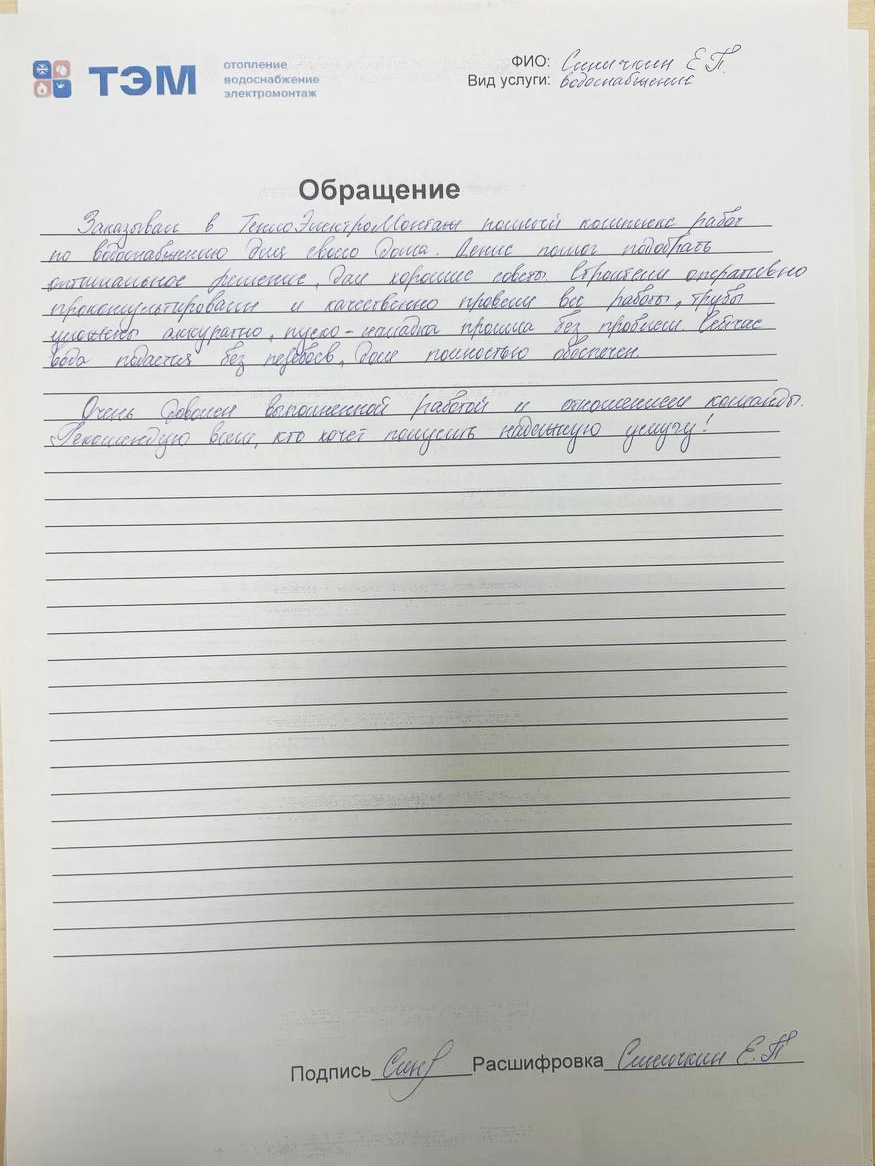 ТЭМ
отопление
водоснабжение
электромонтаж
ФИО: Синичкин Е.П.
Вид услуги: водоснабжение
Обращение
Заказывал в ТеплоЭлектроМонтаж полный комплекс работ
по водоснабжению для своего дома. Денис помог подобрать
оптимальное решение, дал хорошие советы. Строители оперативно
проконсультировали и качественно провели все работы, трубы
уложены аккуратно, пуско-наладка прошла без проблем. Сейчас
вода подается без перебоев, дом полностью обеспечен.
Очень доволен выполненной работой и отношением команды.
Рекомендую всем, кто хочет получить надежную услугу!
Подпись Син Расшифровка Синичкин Е.П